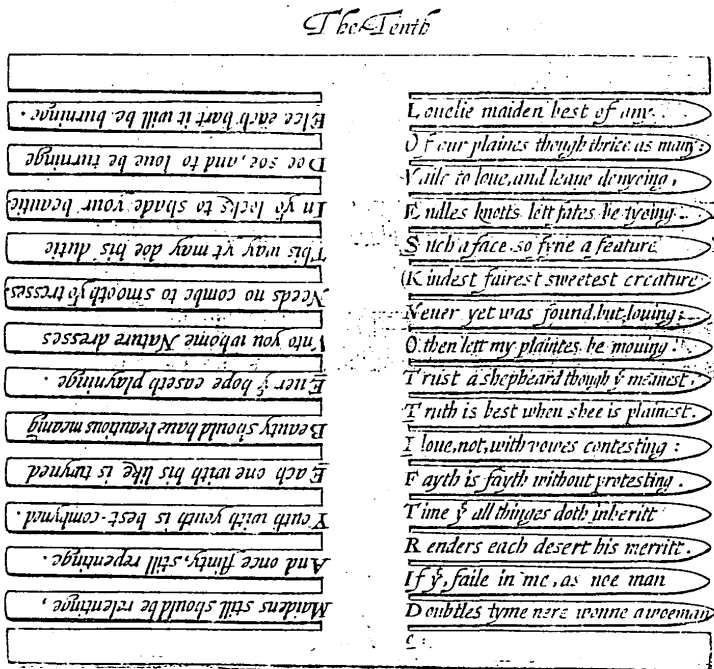 The Tenth
Louelie maiden best of any
Of our plaines though thrice as many:
Vaile to loue, and leaue denyeing,
Endles knotts lett fates be tyeing.
Such a face, so fyne a feature
(Kindest fairest sweetest creature
Neuer yet was found, but louing;
O then lett my plaintes be mouing.
Trust a shepheard though yͤ meanest,
Truth is best when shee is plainest.
I loue, not, with vowes contesting:
Fayth is fayth without protesting.
Time yͭ all thinges doth inheritt
Renders each desert his merritt.
If yͭ, faile in me, as noe man
Doubtles tyme nere wonne a woeman
Maidens still should be relentinge,
And once flinty, still repentinge.
Youth with youth is best combyned.
Each one with his like is twyned
Beauty should haue beautious meaning
Euer yͭ hope easeth playninge.
Vnto you whome Nature dresses
Needs no combe to smooth yoͬ tresses.
This way yt may doe his dutie
In yoͬ locks to shade your beautie
Doe soe, and to loue be turninge
Elce each hart it will be burninge.